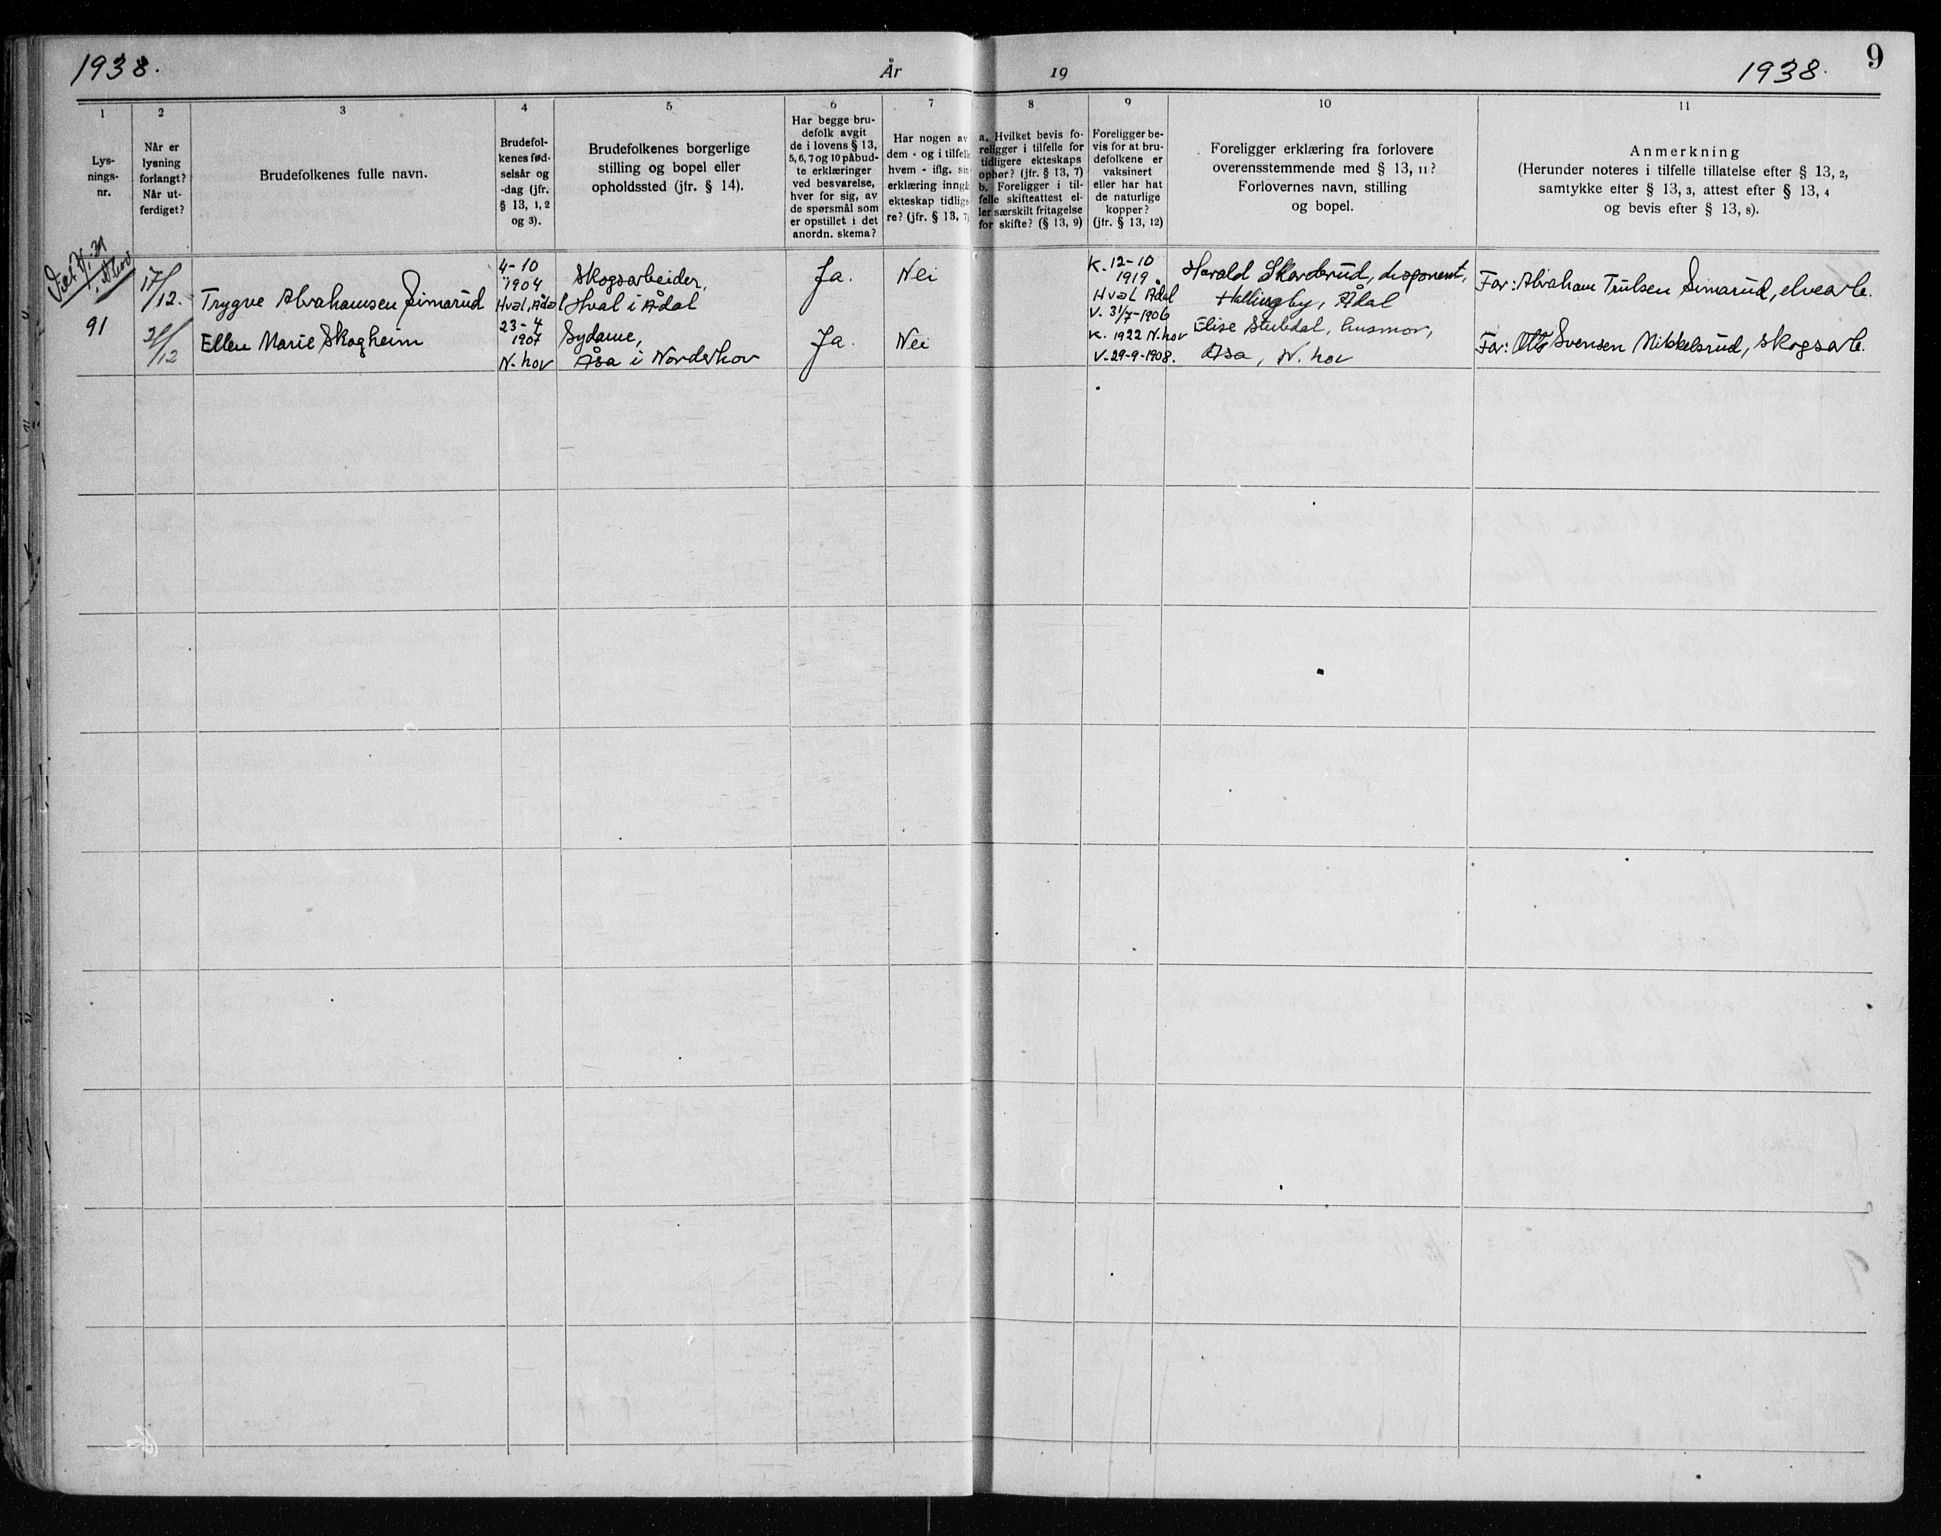 1938.
År
19
1938.
9
1
Lys-
nings-
nr.
2
Når er
lysning
forlangt?
Når ut-
ferdiget?
3
Brudefolkenes fulle navn.
4
Brudefol-
kenes fød-
selsår og
-dag (jfr.
§ 13, 1, 2
og 3).
5
Brudefolkenes borgerlige
stilling og bopel eller
opholdssted (jfr. § 14).
6
Har begge bru-
defolk avgit
de i lovens § 13,
5, 6, 7 og 10 påbud-
te erklæringer
ved besvarelse,
hver for sig, av
de spørsmål som
er opstillet i det
anordn. skema?
7
Har nogen av
dem - og i tilfelle
hvem - iflg. sin
erklæring inngå
ekteskap tidlige
re? (jfr. § 13, 7)
8
a. Hvilket bevis fo-
religger i tilfelle for
tidligere ekteskaps
ophør? (jfr. § 13, 7)
b. Foreligger i til-
felle skifteattest el-
ler særskilt fritagelse
for skifte? (§ 13, 9)
9
Foreligger be-
vis for at bru-
defolkene er
vaksinert
eller har hat
de naturlige
kopper?
(jfr. § 13, 12)
10
Foreligger erklæring fra forlovere
overensstemmende med § 13, 11?
Forlovernes navn, stilling
og bopel.
11
Anmerkning
(Herunder noteres i tilfelle tillatelse efter § 13, 2,
samtykke efter § 13, 3, attest efter § 13, 4
og bevis efter § 13, 8).
91
17/12.
Trygve Abrahamsen Simarud
4-10
1904
Hval, Ådal
Skogsarbeider,
Hval i Ådal
Ja.
Nei
K. 12-10
1919
Hval Ådal
V. 31/7-1906
Harald Skarderud, disponent,
Hallingby, Ådal
Far: Abraham Trulsen Simarud, elvearb.
31/12
Ellen Marie Skogheim
23-4
1907
N. hov
Sydame,
Åsa i Norderhov
Ja.
Nei
K. 1922 N. hov
V. 29-9-1908.
Elise Stubdal, husmor,
Åsa, N. hov
Far: Otto Svensen Mikkelsrud, skogsarb.